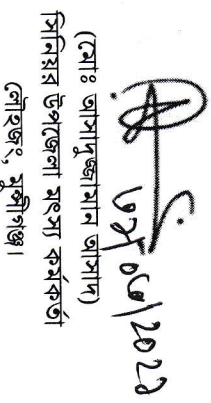 (মোঃ আসাদুজ্জামান আসাদ)
সিনিয়র উপজেলা মৎস্য কর্মকর্তা
লৌহজং, মুন্সীগঞ্জ।